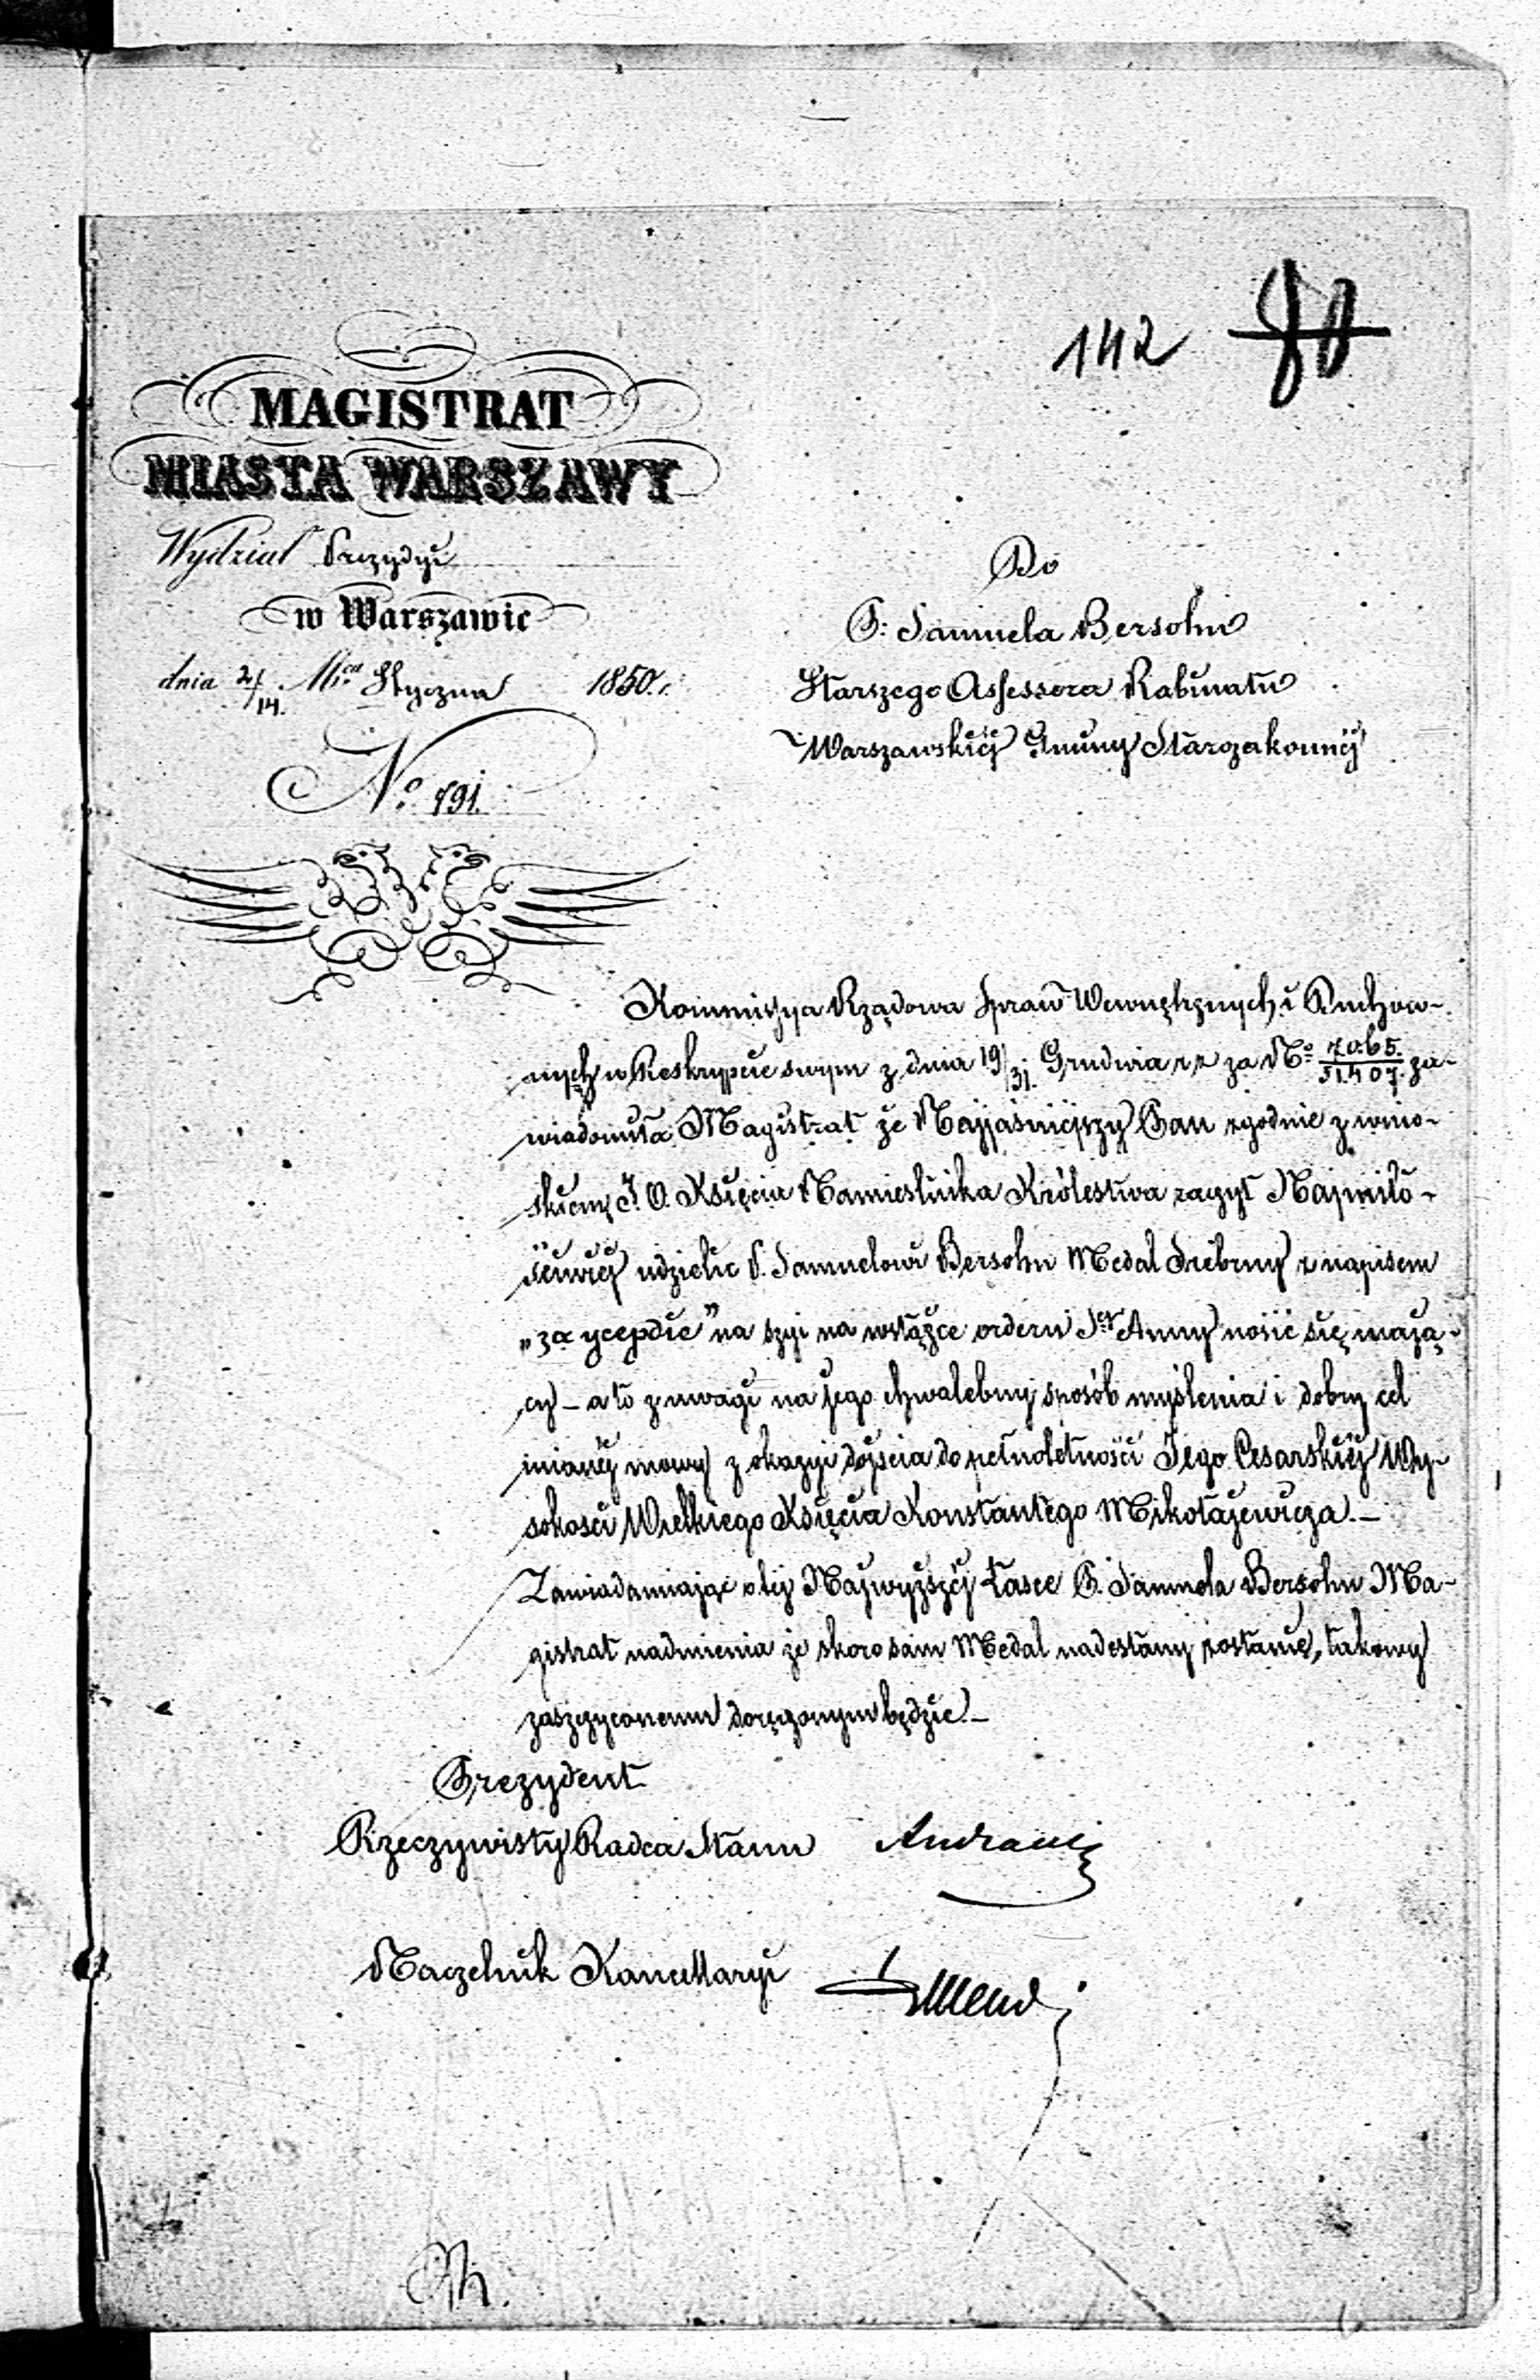 142
MAGISTRAT
MIASTA WARSZAWY
Wydział Prezydyi
w Warszawie
dnia 2/14. Mca Styczna 1850 r.
No 191.
Do
P: Samuela Bersohn
Starszego Assessora Rabinatu
Warszawskiéj Gminy Starozakonnéj
Kommissya Rządowa Spraw Wewnętrznych i Duchow-
nych w Reskrypcie swym z dnia 19/31. Grudnia za No 7065./51.407. za-
wiadomiła Magistrat że Najjaśniejszy Pan zgodnie z wnio-
skiem J. O. Księcia Namiestnika Królestwa raczył Najmiło-
ściwiéj udzielić P. Samuelowi Bersohn Medal Srebrny z napisem
„za ycepdie” na szyi na wstążce orderu Stéj Anny nosić się mają-
cy – a to z uwagi na jego chwalebny sposób myślenia i dobry cel
mianéj mowy z okazyi dojścia do pełnoletności Jego Cesarskiéj Wy-
sokości Wielkiego Księcia Konstantego Mikołajewicza. –
Zawiadamiając o téj Najwyższéj Łasce P. Samuela Bersohn Ma-
gistrat nadmienia że skoro sam Medal nadesłany zostanie, takowy
zaszczyconemu doręczonym będzie. –
Prezydent
Rzeczywisty Radca Stanu
Naczelnik Kancellaryi